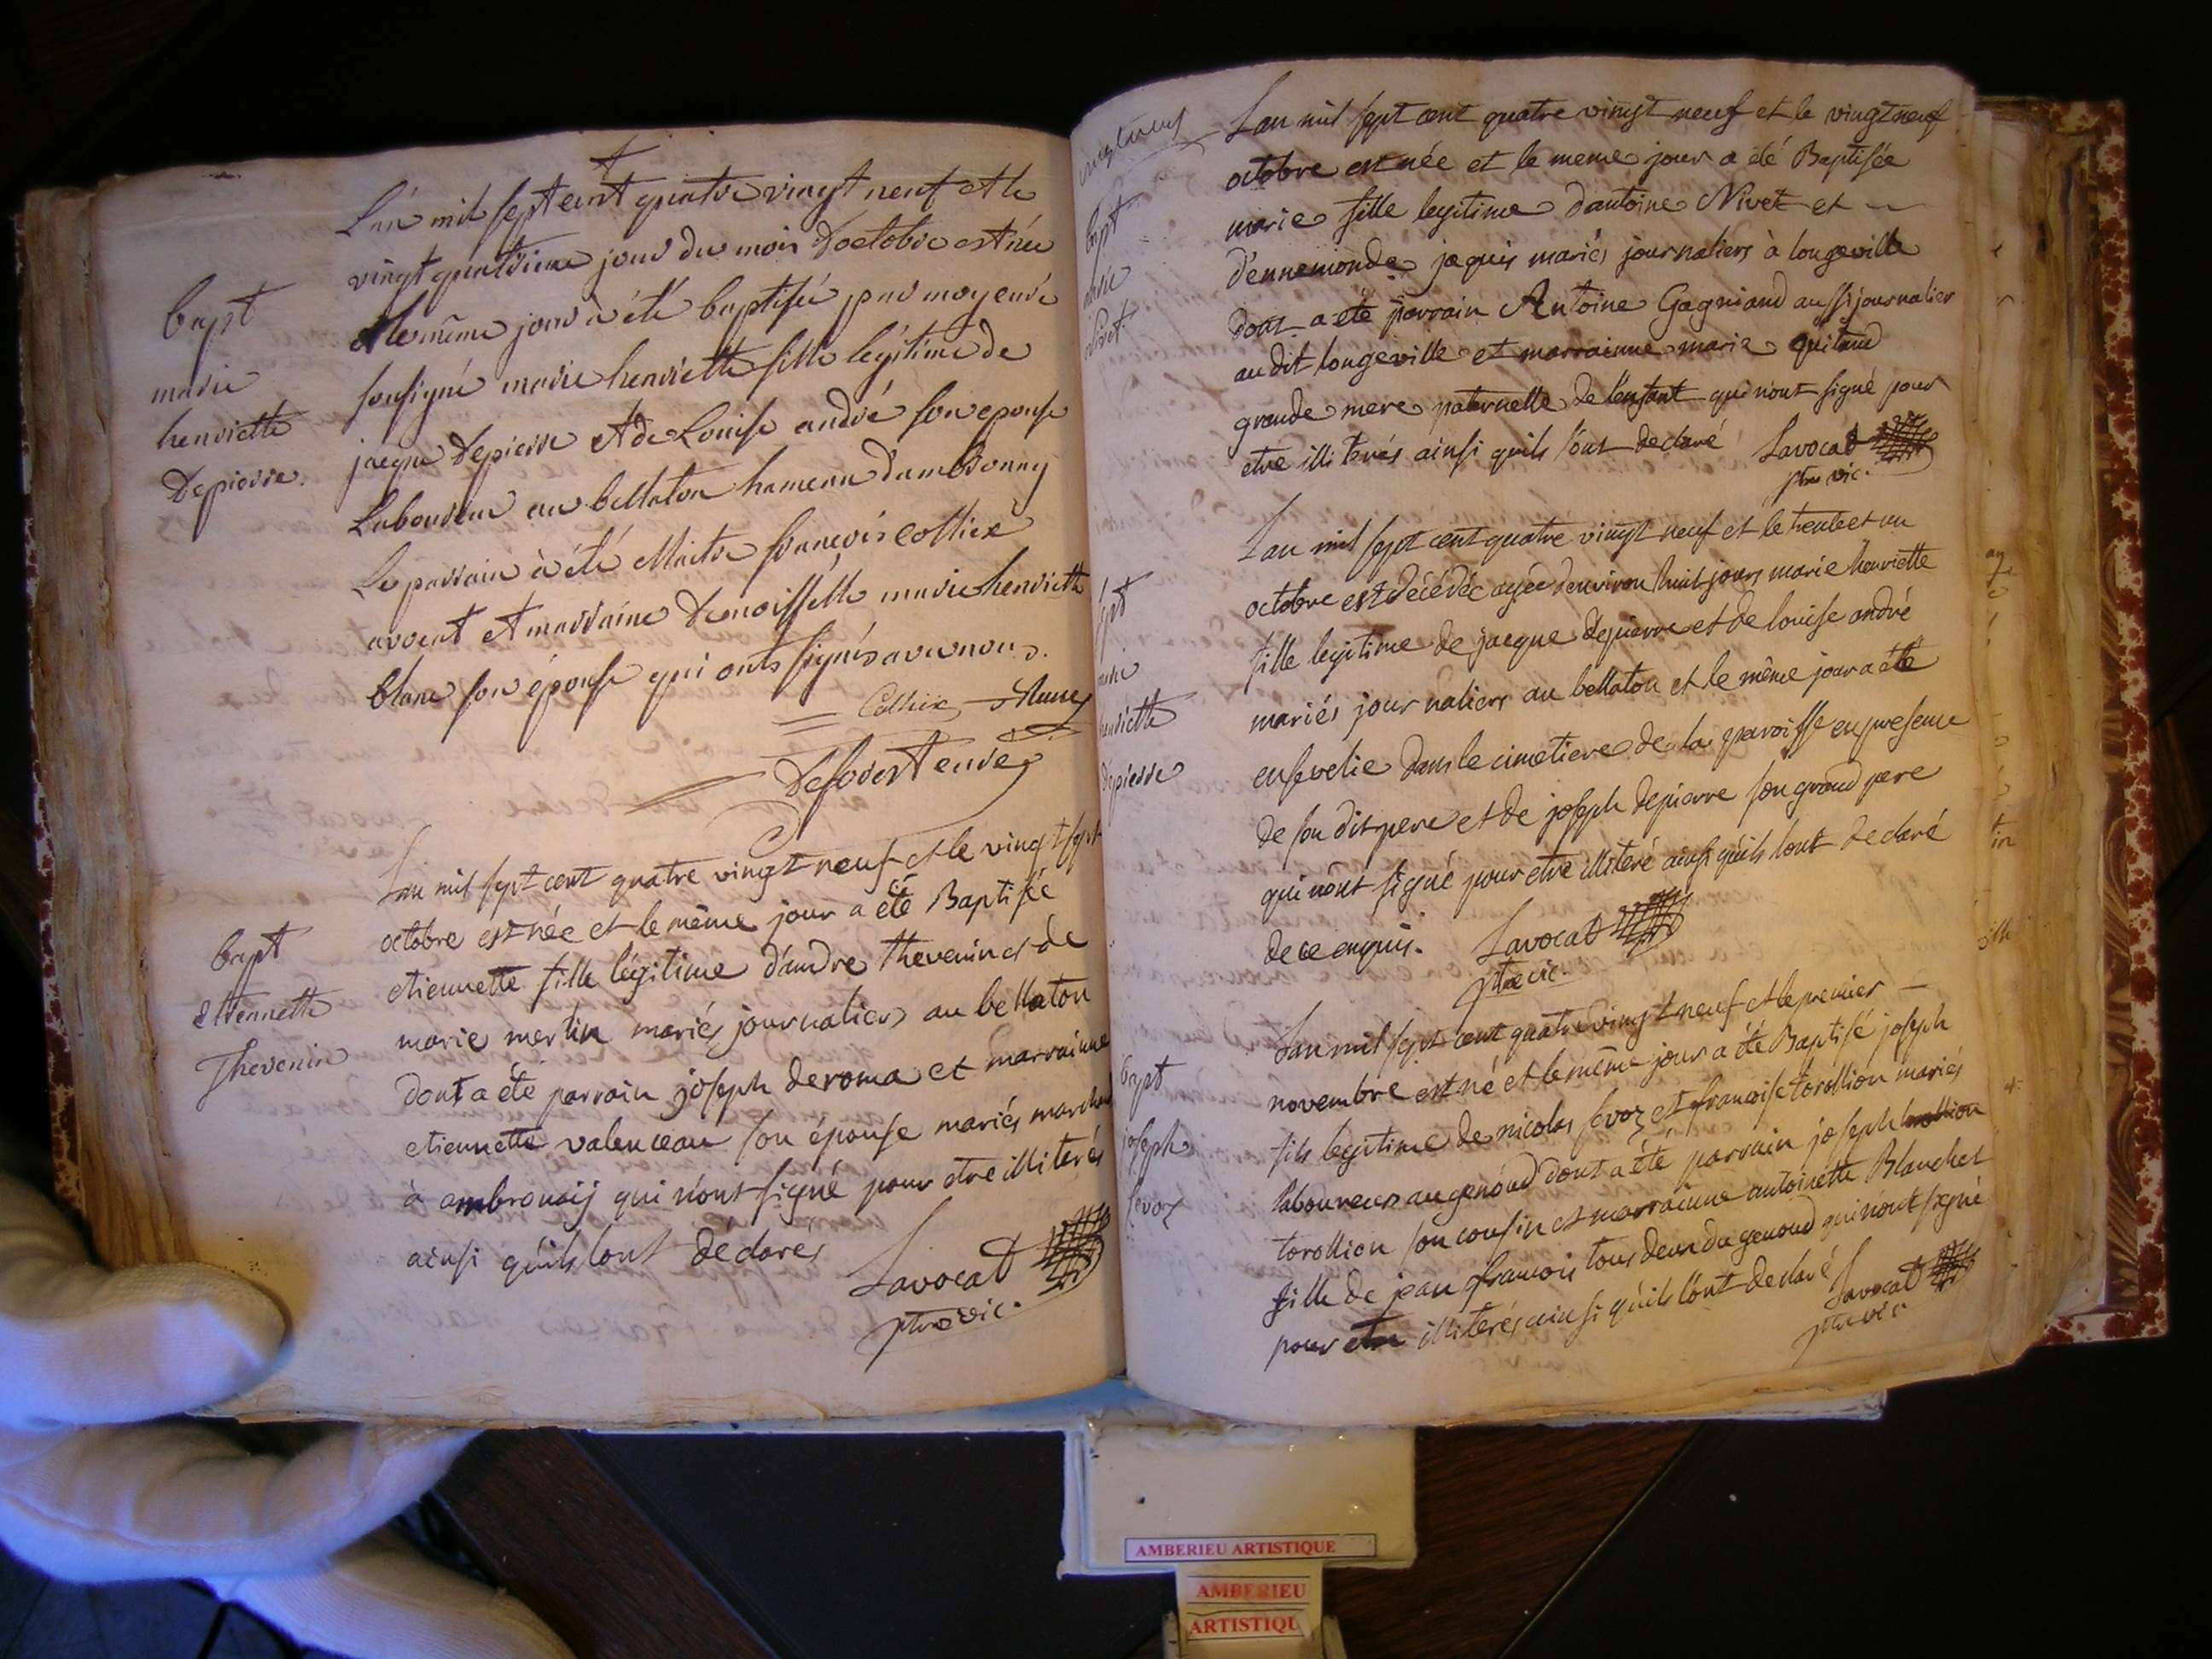 L'an mil sept cent quatre vingt neuf et le
vingt quatrieme jour du mois d'octobre est née
et le même jour à été baptisée par moy curé
soussigné marie henriette fille legitime de
jacque depierre et de Louise andré son epouse
Laboureur au bellaton hameau d'ambronay
Le parrain à été Maitre francois Collier
avocat et marraine demoisselle marie henriette
blanc son épouse qui onts signés avec nous.
bapt
marie
henriette
Depierre.
L'an mil sept cent quatre vingt neuf et le vingt sept
octobre est née et le même jour a été Baptisée
etiennette fille légitime d'andre thevenin et de
marie merlin mariés journaliers au bellaton
dont a été parrain joseph deroma et marrainne
etiennette valenceau son épouse mariés
à ambronaij qui n'ont signé pour etre illiterés
ainsi qu'ils l'ont déclarés
Lavocat
ptre vic.
bapt
etiennette
Thevenin
L'an mil sept cent quatre vingt neuf et le vingt neuf
octobre est née et le meme jour a été Baptisée
marie fille legitime d'antoine Nivet et
d'ennemonde jaquis mariés journaliers à longeville
dont a été parrain Antoine Gagniand aussi journalier
au dit longeville et marrainne marie
grande mere paternelle de l'enfant qui n'ont signé pour
etre illiterés ainsi qu'ils l'ont declaré Lavocat
ptre vic.
L'an mil sept cent quatre vingt neuf et le trente et un
octobre est décédée agée d'environ huit jours marie henriette
fille legitime de jacque depierre et de louise andré
mariés journaliers au bellaton et le même jour a été
ensevelie dans le cimetiere de la paroisse en presence
de son dit pere et de joseph depierre son grand pere
qui n'ont signé pour etre illiteré ainsi qu'ils l'ont declaré
de ce enquis. Lavocat
ptre vic.
henriette
depierre
L'an mil sept cent quatre vingt neuf et le premier
novembre est né et le même jour a été Baptisé joseph
fils legitime de nicolas sevoz et francoise torollion mariés
laboureurs au genoud dont a été parrain joseph
torollion son cousin et marrainne antoinette Blanchet
fille de jean francois tous deux du genoud qui n'ont signé
pour etre illiterés ainsi qu'ils l'ont declaré Lavocat
ptre vic.
bapt
joseph
sevoz
AMBERIEU ARTISTIQUE
AMBERIEU
ARTISTIQU